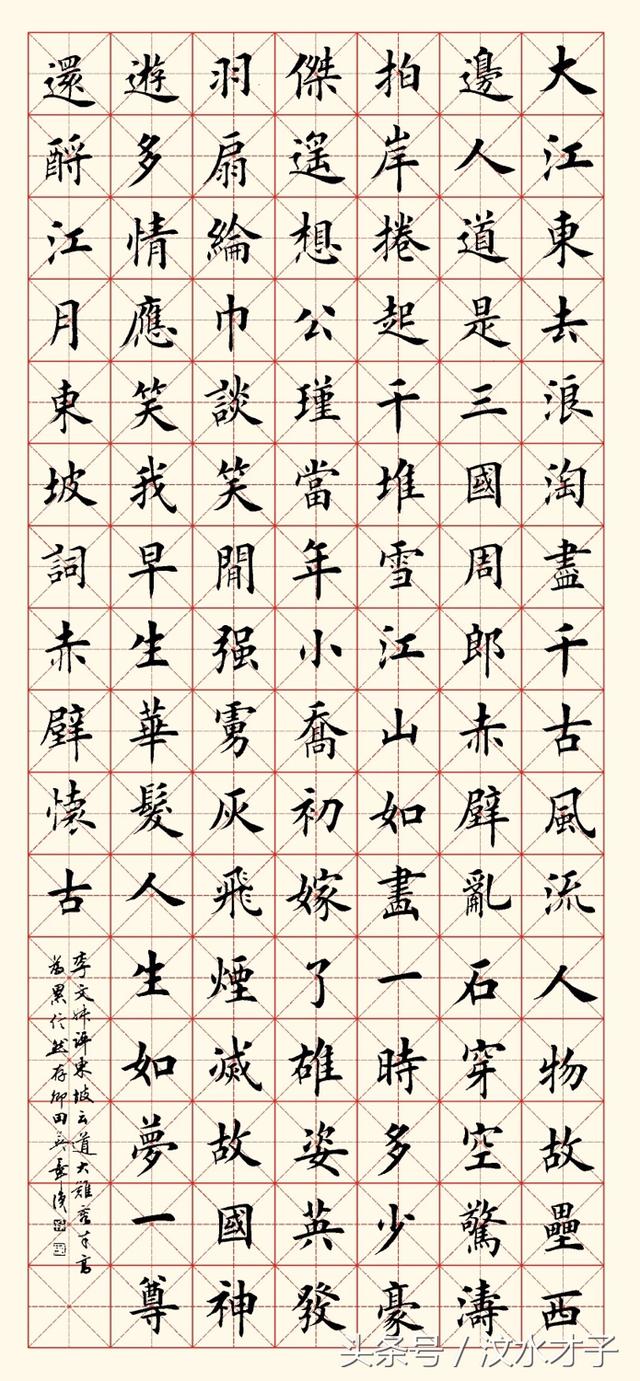 大江東去浪淘盡千古風流人物故壘西
邊人道是三國周郎赤壁亂石穿空驚濤
拍岸捲起千堆雪江山如畫一時多少豪
傑遙想公瑾當年小喬初嫁了雄姿英發
羽扇綸巾談笑間强虜灰飛煙滅故國神
遊多情應笑我早生華髮人生如夢一尊
還酹江月東坡詞赤壁懷古
頭条号 / 汶水才子